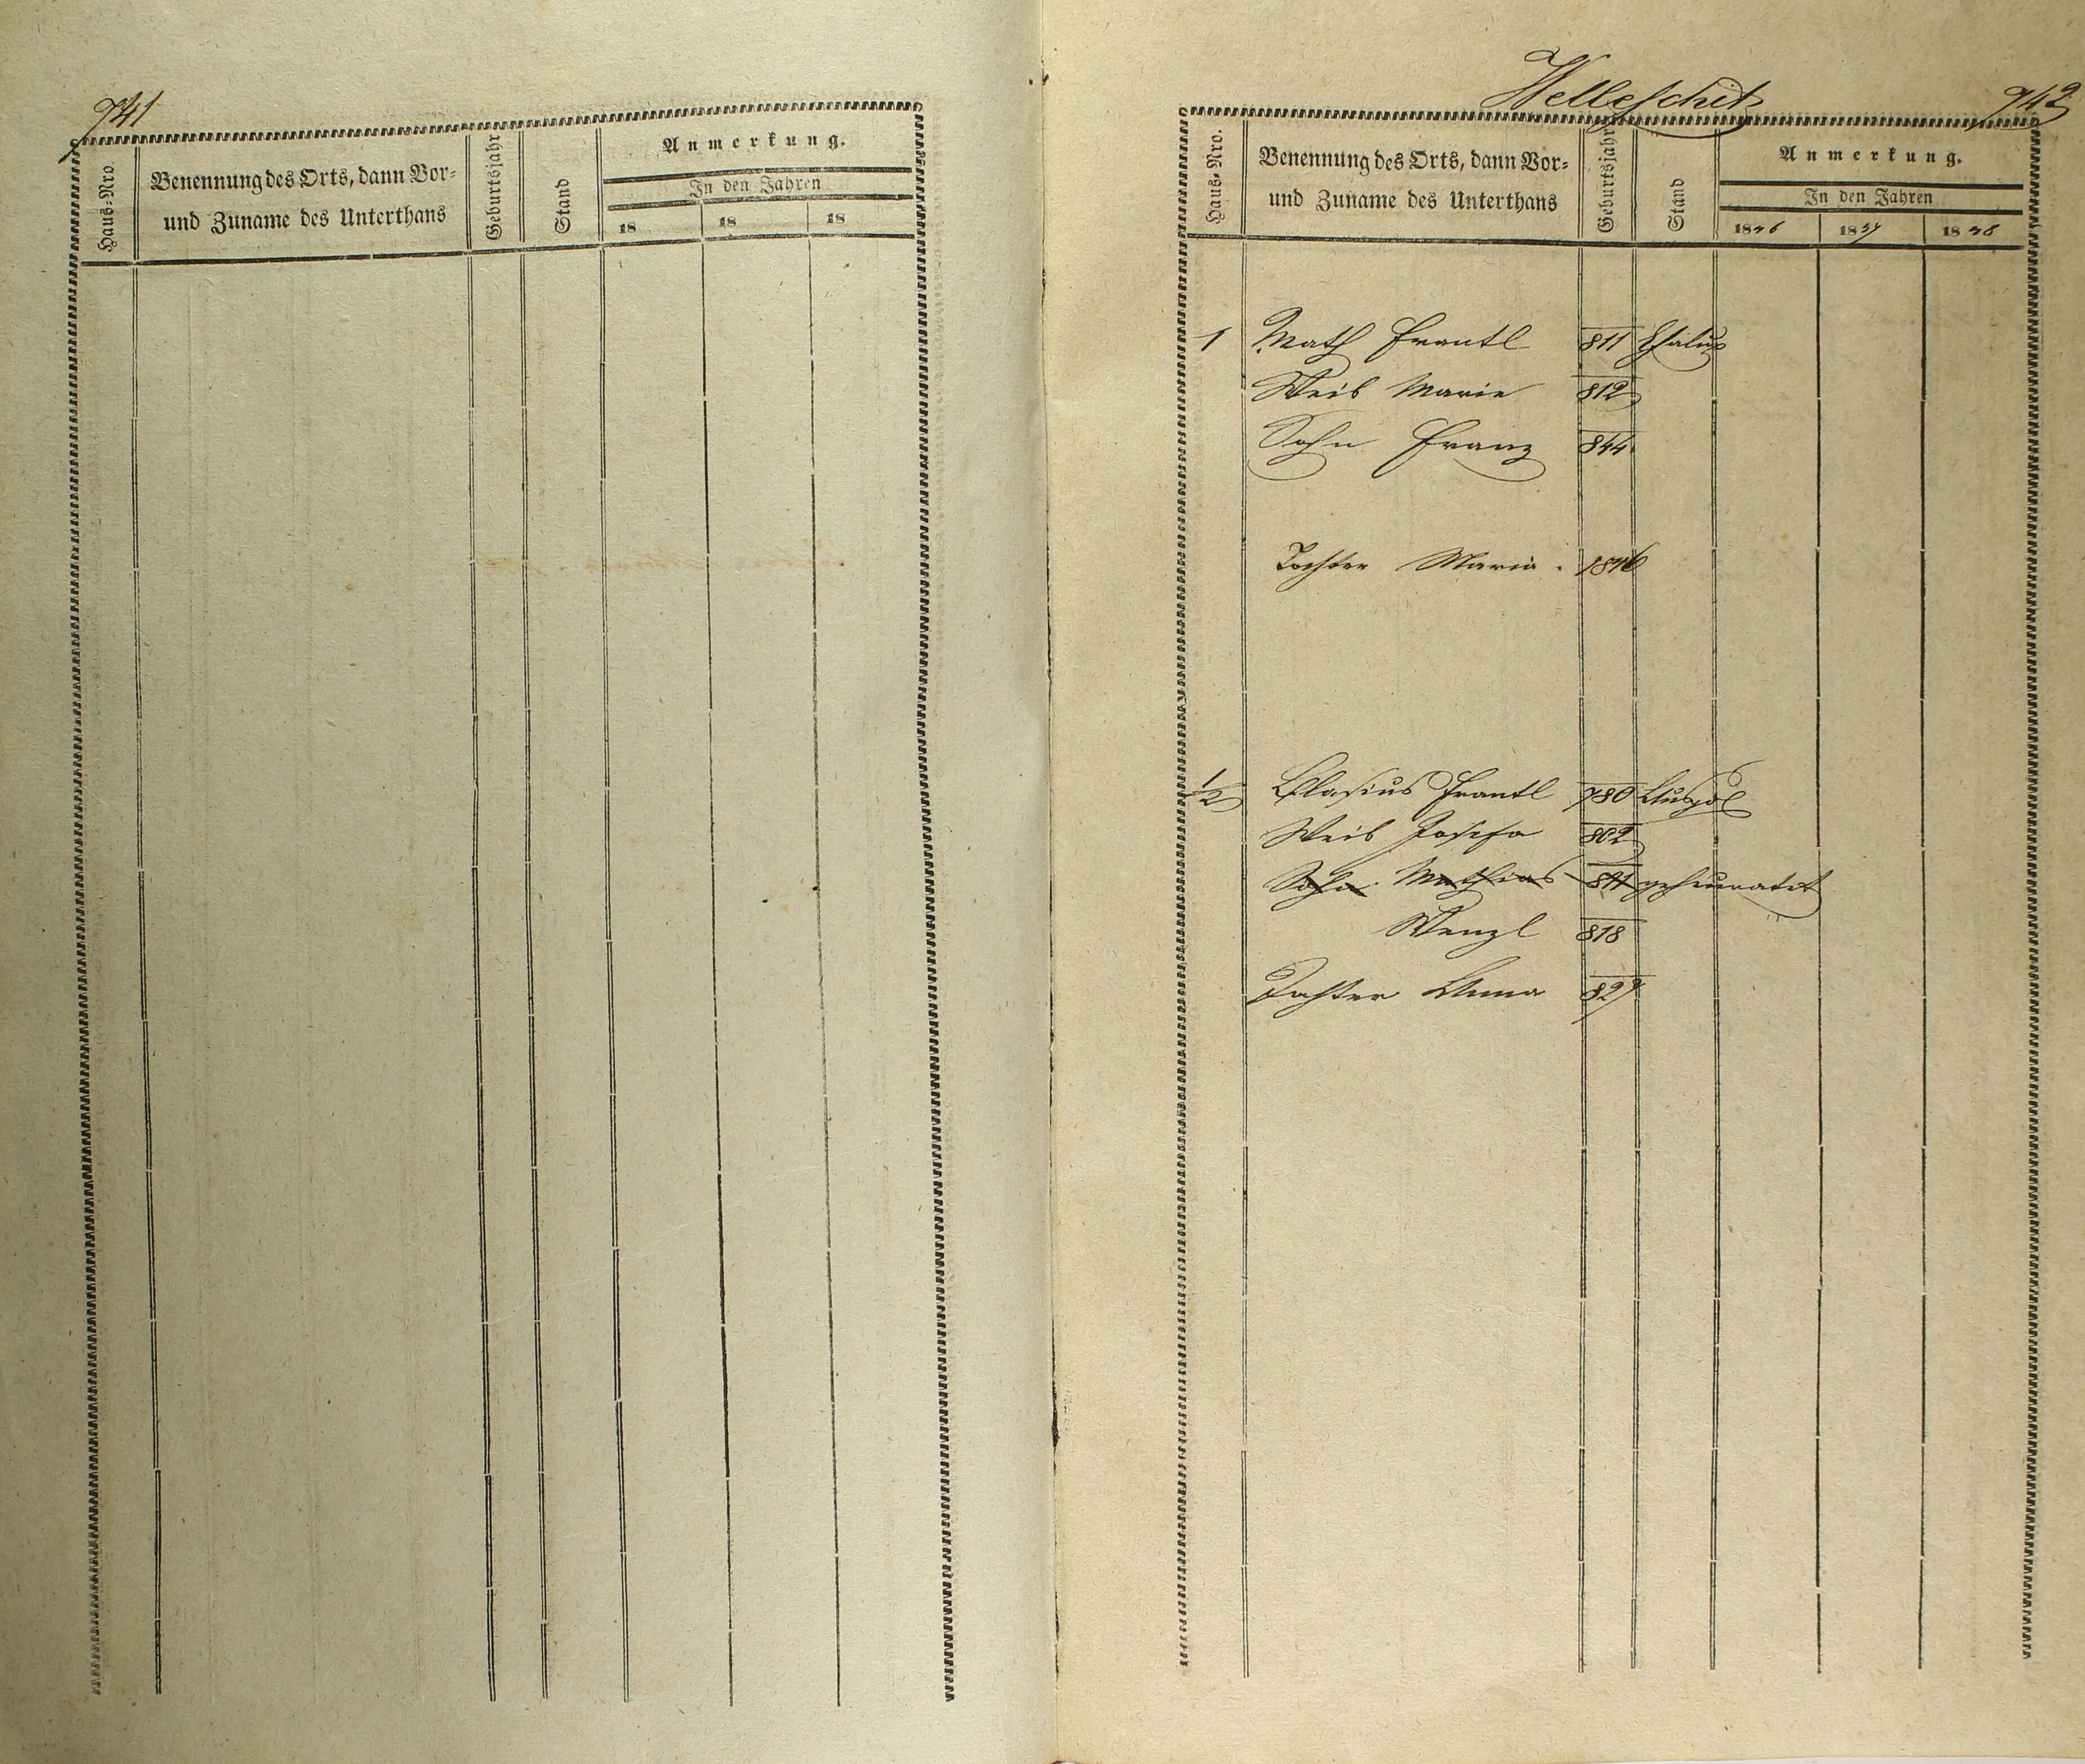 741
Haus-Nro
Benennung des Orts, dann Vor-
und Zuname des Unterthans
Geburtsjahr
Stand
Anmerkung.
In den Jahren
18 18 18
Welleschitz 742
Haus-Nro.
Benennung des Orts, dann Vor-
und Zuname des Unterthans
Geburtsjahr
Stand
Anmerkung.
In den Jahren
1846 1847 1848
1 Math Frantl 811
Weib Marie 812
Sohn Franz 844
Tochter Maria. 1846
1/2 Blasius Frantl 780 Ausgdl
Weib Josefa 802
Sohn Mathias 811 geheuratet
Wenzl 818
Tochter Anna 827